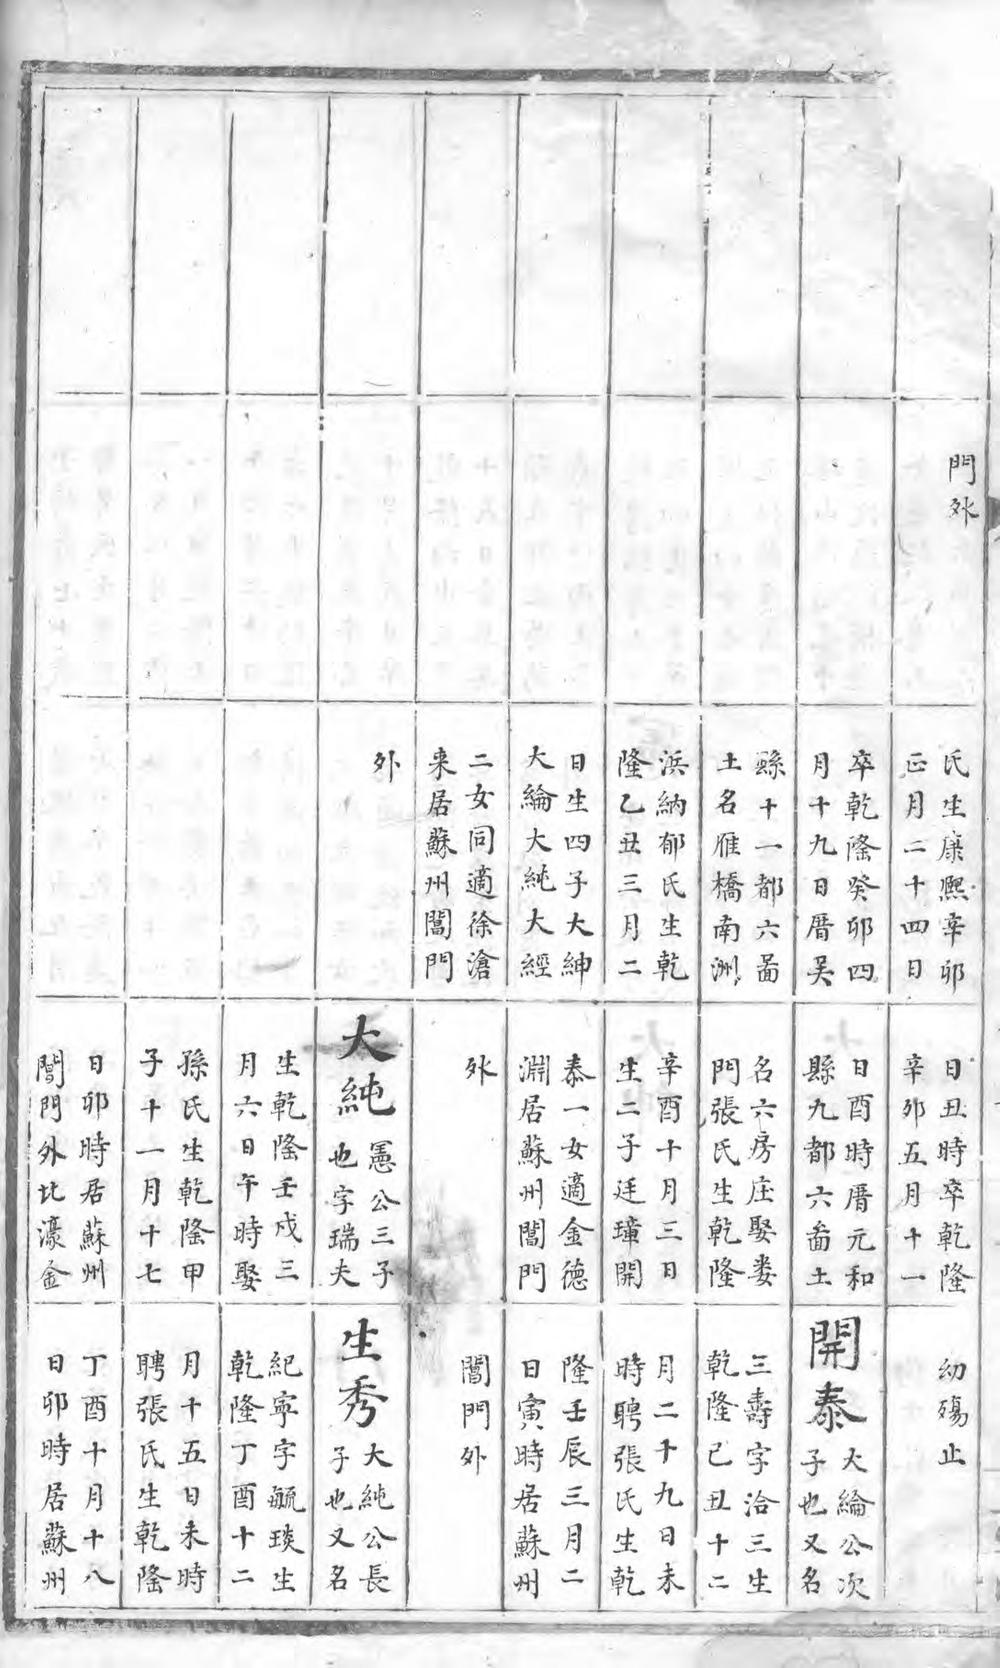 門外
氏生康熙辛卯
正月二十四日
卒乾隆癸卯四
月十九日厝吳
縣十一都六啚
土名雁橋南洲
浜納郁氏生乾
隆乙丑三月二
日生四子大紳
大綸大純大經
二女同適徐滄
来居蘇州閶門
外
日丑時卒乾隆
辛卯五月十一
日酉時厝元和
縣九都六啚土
名六房庄娶娄
門張氏生乾隆
辛酉十月三日
生二子廷璋開
泰一女適金德
淵居蘇州閶門
外
大純
憲公三子
也字瑞夫
生乾隆壬戌三
月六日午時娶
孫氏生乾隆甲
子十一月十七
日卯時居蘇州
閶門外北濠金
幼殤止
開泰
大綸公次
子也又名
三壽字洽三生
乾隆己丑十二
月二十九日未
時聘張氏生乾
隆壬辰三月二
日寅時居蘇州
閶門外
生秀
大純公長
子也又名
紀寧字毓琰生
乾隆丁酉十二
月十五日未時
聘張氏生乾隆
丁酉十月十八
日卯時居蘇州